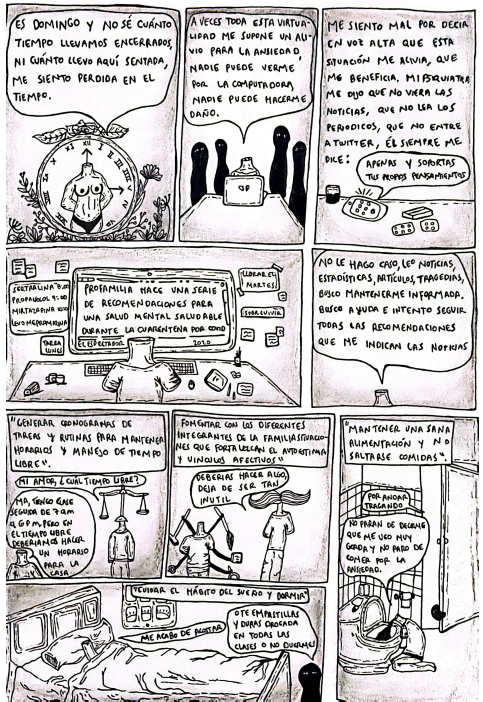 ES DOMINGO Y NO SÉ CUÁNTO
TIEMPO LLEVAMOS ENCERRADOS,
NI CUÁNTO LLEVO AQUÍ SENTADA,
ME SIENTO PERDIDA EN EL
TIEMPO.
A VECES TODA ESTA VIRTUA-
LIDAD ME SUPONE UN ALI-
VIO PARA LA ANSIEDAD,
NADIE PUEDE VERME
POR LA COMPUTADORA,
NADIE PUEDE HACERME
DAÑO.
ME SIENTO MAL POR DECIR
EN VOZ ALTA QUE ESTA
SITUACIÓN ME ALIVIA, QUE
ME BENEFICIA. MI PSIQUIATRA
ME DIJO QUE NO VIERA LAS
NOTICIAS, QUE NO LEA LOS
PERIODICOS, QUE NO ENTRE
A TWITTER, ÉL SIEMPRE ME
DICE:
APENAS Y SOPORTAS
TUS PROPIOS PENSAMIENTOS
SERTRALINA 8:00
PROPANOLOL 9:00
MIRTAZAPINA 10:00
LEVOMEPROMAZINA
TAREA
LUNES
PROFAMILIA HACE UNA SERIE
DE RECOMENDACIONES PARA
UNA SALUD MENTAL SALUDABLE
DURANTE LA CUARENTENA POR COVID
EL ESPECTADOR 2020
LLORAR EL
MARTES
SOBREVIVIR
NO LE HAGO CASO, LEO NOTICIAS,
ESTADÍSTICAS, ARTÍCULOS, TRAGEDIAS,
BUSCO MANTENERME INFORMADA.
BUSCO AYUDA E INTENTO SEGUIR
TODAS LAS RECOMENDACIONES
QUE ME INDICAN LAS NOTICIAS
"GENERAR CRONOGRAMAS DE
TAREAS Y RUTINAS PARA MANTENER
HORARIOS Y MANEJO DE TIEMPO
LIBRE".
MI AMOR, ¿CUÁL TIEMPO LIBRE?
MA, TENGO CLASE
SEGUIDA DE 7 am
A 6 pm, PERO EN
EL TIEMPO LIBRE
DEBERIAMOS HACER
UN HORARIO
PARA LA
CASA
FOMENTAR CON LOS DIFERENTES
INTEGRANTES DE LA FAMILIA SITUACIO-
NES QUE FORTALEZCAN EL AUTOESTIMA
Y VINCULOS AFECTIVOS"
DEBERIAS HACER ALGO,
DEJA DE SER TAN
INUTIL
"MANTENER UNA SANA
ALIMENTACIÓN Y NO
SALTARSE COMIDAS".
POR ANDAR
TRAGANDO
NO PARAN DE DECIRME
QUE ME VEO MUY
GORDA Y NO PARO DE
COMER POR LA
ANSIEDAD.
"CUIDAR EL HÁBITO DEL SUEÑO Y DORMIR"
ME ACABO DE ACOSTAR
O TE EMPASTILLAS
Y DURAS DROGADA
EN TODAS LAS
CLASES O NO DUERMES